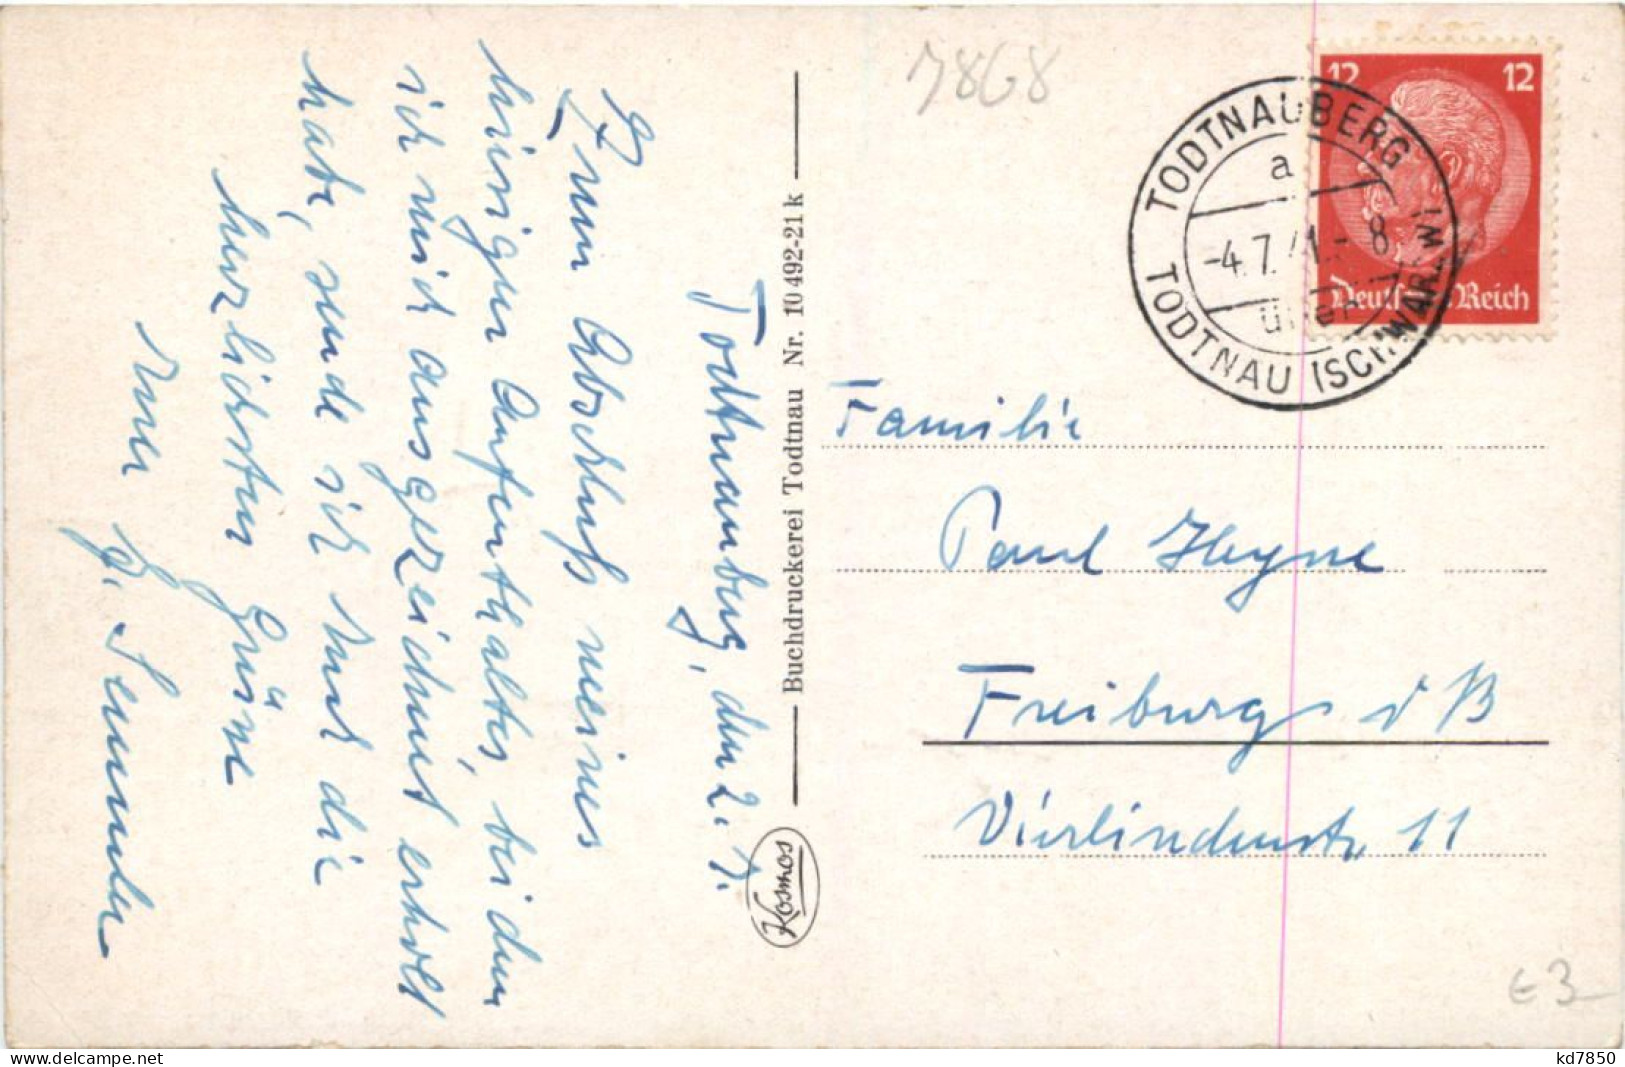 Todtnauberg, den 2.7.
Zum Abschluß meines
hiesigen Aufenthaltes, bei dem
ich mich ausgezeichnet erholt
habe, sende ich Ihnen die
herzlichsten Grüße
Ihr
Buchdruckerei Todtnau Nr. 10 492-21 k
Kosmos
7868
12 12
Deutsches Reich
TODTNAUBERG
a
-4.7.41.-8
über
TODTNAU (SCHWARZW)
Familie
Paul Heyne
Freiburg i B
Vierlindenstr. 11
€3
kd7850
www.delcampe.net